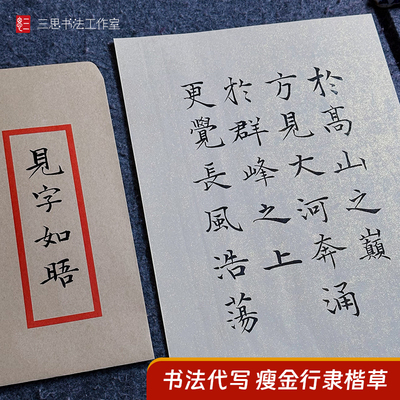 三思书法工作室
見字如晤
於高山之巔
方見大河奔涌
於群峰之上
更覺長風浩蕩
书法代写 瘦金行隶楷草